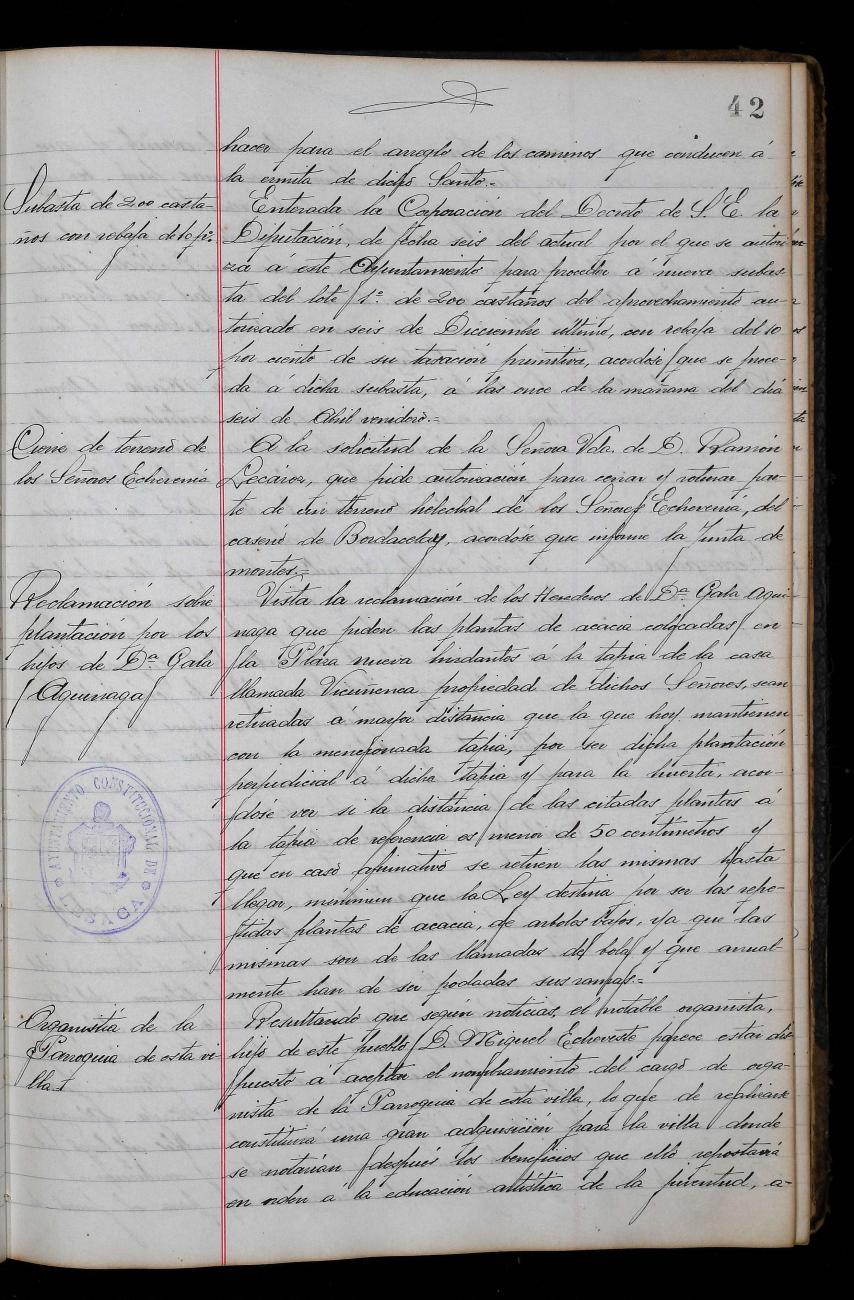 42
hacer para el arreglo de los caminos que conducen á
la ermita de dicho Santo.=
Subasta de 200 casta-
ños con rebaja del 10 p%.
Enterada la Corporación del Decreto de S. E. la
Diputación, de fecha seis del actual por el que se autori-
za á este Ayuntamiento para proceder á nueva subas-
ta del lote 1º. de 200 castaños del aprovechamiento au-
torizado en seis de Diciembre último, con rebaja del 10
por ciento de su tasación primitiva, acordóse que se proce-
da a dicha subasta, á las once de la mañana del día
seis de Abril venidero.=
Cierre de terreno de
los Señores Echevenia
A la solicitud de la Señora Vda. de D. Ramón
Lecároz, que pide autorización para cerrar y roturar par-
te de un terreno helechal de los Señores Echevenia, del
caserío de Bordacelay, acordóse que informe la Junta de
montes.=
Reclamación sobre
plantación por los
hijos de Dª. Gala
Aguinaga
Vista la reclamación de los Herederos de Dª. Gala Agui-
naga que piden las plantas de acacia colocadas en
la Plaza nueva lindantes á la tapia de la casa
llamada Vicuñenea propiedad de dichos Señores, sean
retiradas á mayor distancia que la que hoy mantienen
con la mencionada tapia, por ser dicha plantación
perjudicial a dicha tapia y para la huerta, acor-
dóse ver si la distancia de las citadas plantas á
la tapia de referencia es menor de 50 centímetros y
que en caso afirmativo se retiren las mismas hasta
llegar, mínimun que la Ley destina por ser las repe-
tidas plantas de acacia, de arboles bajos, ya que las
mismas son de las llamadas de bola y que anual-
mente han de ser podadas sus ramas.=
AYUNTAMIENTO CONSTITUCIONAL DE
LESACA
Organistia de la
Parroquia de esta vi-
lla.
Resultando que según noticias, el notable organista,
hijo de este pueblo D. Miguel Echeveste parece estar dis-
puesto á aceptar el nombramiento del cargo de orga-
nista de la Parroquia de esta villa, lo que de realizarse
constituirá una gran adquisición para la villa donde
se notarían después los beneficios que ello reportaría
en orden á la educación artística de la juventud, a-